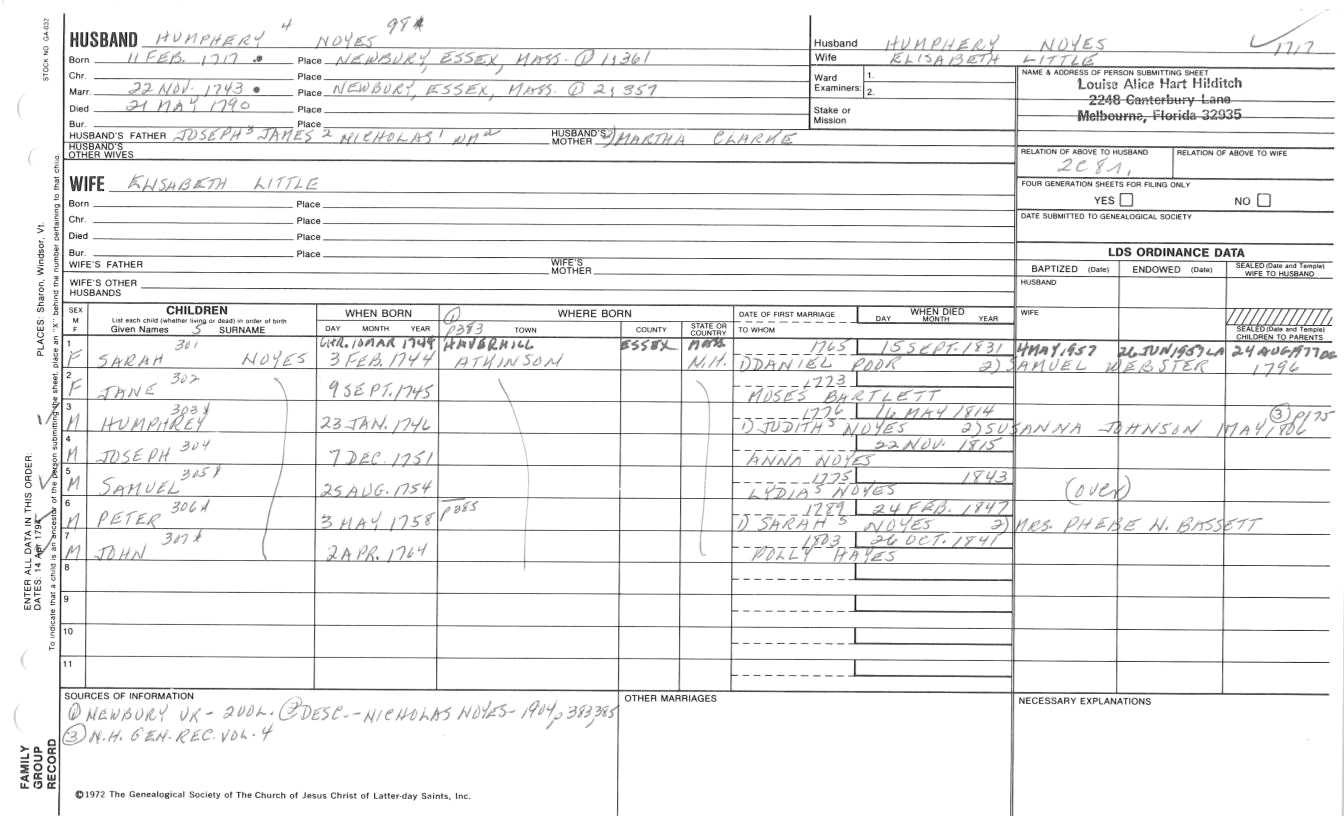 STOCK NO. GA-032
HUSBAND HUMPHERY 4 NOYES 98
Born 11 FEB. 1717 Place NEWBURY, ESSEX, MASS. ① 1;361
Chr. Place
Marr. 22 NOV. 1743 Place NEWBURY, ESSEX, MASS. ① 2;357
Died 21 MAY 1790 Place
Bur. Place
HUSBAND'S FATHER JOSEPH 3 JAMES 2 NICHOLAS 1 HUSBAND'S MOTHER MARTHA CLARKE
HUSBAND'S OTHER WIVES
Husband HUMPHERY NOYES 1717
Wife ELISABETH LITTLE
Ward 1.
Examiners: 2.
Stake or Mission
NAME & ADDRESS OF PERSON SUBMITTING SHEET
Louise Alice Hart Hilditch
2248 Canterbury Lane
Melbourne, Florida 32935
RELATION OF ABOVE TO HUSBAND RELATION OF ABOVE TO WIFE
2C 8
FOUR GENERATION SHEETS FOR FILING ONLY
YES NO
DATE SUBMITTED TO GENEALOGICAL SOCIETY
WIFE ELISABETH LITTLE
Born Place
Chr. Place
Died Place
Bur. Place
WIFE'S FATHER WIFE'S MOTHER
WIFE'S OTHER HUSBANDS
LDS ORDINANCE DATA
BAPTIZED (Date) ENDOWED (Date) SEALED (Date and Temple) WIFE TO HUSBAND
HUSBAND
WIFE
SEALED (Date and Temple) CHILDREN TO PARENTS
SEX M F CHILDREN WHEN BORN WHERE BORN DATE OF FIRST MARRIAGE WHEN DIED
List each child (whether living or dead) in order of birth
Given Names 5 SURNAME DAY MONTH YEAR ① P383 TOWN COUNTY STATE OR COUNTRY TO WHOM DAY MONTH YEAR
1 301 CHR. 10 MAR 1744 HAVERHILL ESSEX MASS 1765 15 SEPT. 1831 4 MAY 1957 26 JUN 1957 LA 24 AUG 1977
F SARAH NOYES 3 FEB. 1744 ATKINSON N.H. 1) DANIEL POOR 2) SAMUEL WEBSTER 1796
2 302 1773
F JANE 9 SEPT. 1745 MOSES BARTLETT
3 303 1776 16 MAY 1814 ③ P175
M HUMPHREY 23 JAN. 1746 1) JUDITH 5 NOYES 2) SUSANNA JOHNSON MAY, 1806
4 304 22 NOV. 1815
M JOSEPH 7 DEC. 1751 ANNA NOYES
5 305 1775 1843
M SAMUEL 25 AUG. 1754 LYDIA 5 NOYES (over)
6 306 P385 1789 24 FEB. 1847
M PETER 3 MAY 1758 1) SARAH 5 NOYES 2) MRS. PHEBE N. BASSETT
7 307 1803 26 OCT. 1841
M JOHN 2 APR. 1764 POLLY HAYES
8
9
10
11
SOURCES OF INFORMATION
① NEWBURY VR - 2 VOL. ② DESC. - NICHOLAS NOYES - 1904, p 383, 385
③ N.H. GEN. REC. VOL. 4
OTHER MARRIAGES
NECESSARY EXPLANATIONS
©1972 The Genealogical Society of The Church of Jesus Christ of Latter-day Saints, Inc.
FAMILY GROUP RECORD
ENTER ALL DATA IN THIS ORDER:
DATES: 14 Apr 1794
PLACES: Sharon, Windsor, Vt.
To indicate that a child is an ancestor of the person submitting the sheet, place an "X" behind the number pertaining to that child.